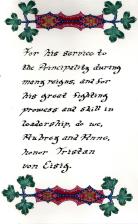 For his service to
the Principality during
many reigns, and for
his great fighting
prowess and skill in
leadership, do we,
Aubrey and Anne,
honor Tristan
von Eising.